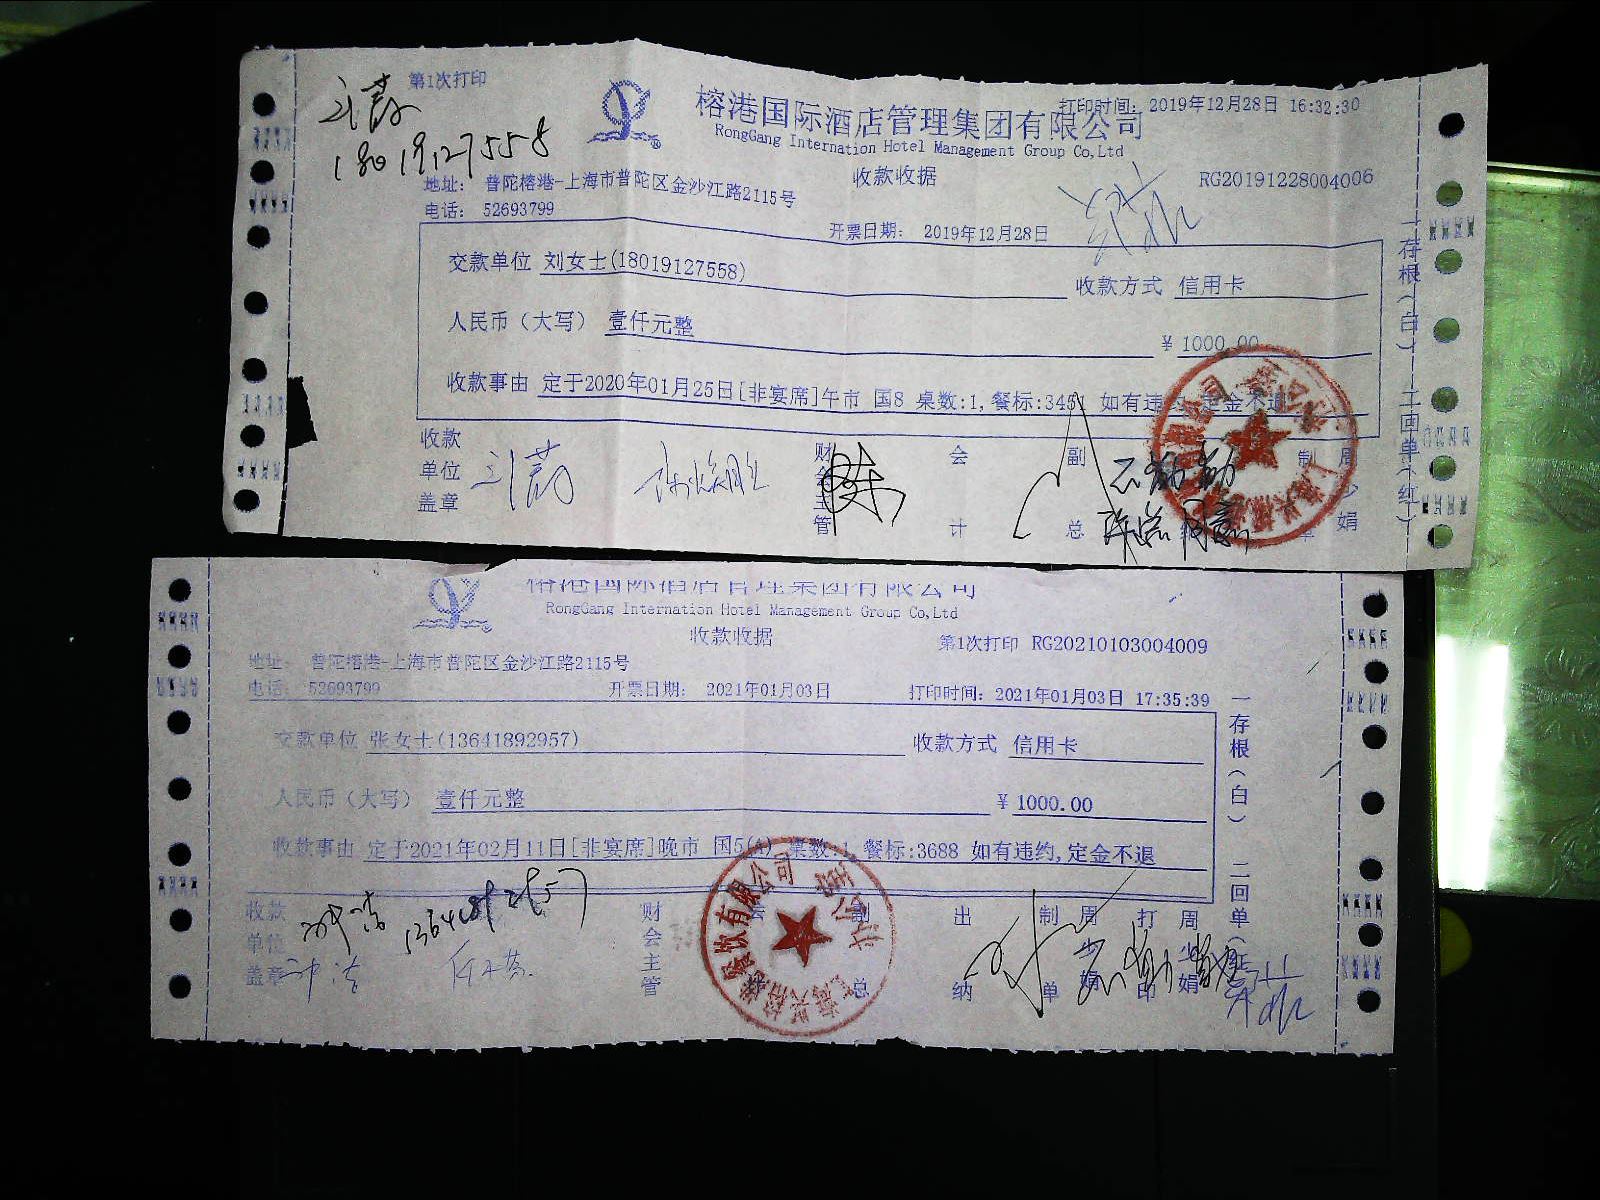 第1次打印
18019127558
榕港国际酒店管理集团有限公司
打印时间: 2019年12月28日 16:32:30
RongGang Internation Hotel Management Group Co,Ltd
收款收据
RG20191228004006
地址: 普陀榕港-上海市普陀区金沙江路2115号
电话: 52693799
开票日期: 2019年12月28日
交款单位 刘女士(18019127558)
收款方式 信用卡
人民币（大写） 壹仟元整
¥ 1000.00
收款事由 定于2020年01月25日[非宴席]午市 国8 桌数:1,餐标:3451 如有违约,定金不退
收款单位盖章
财会主管
会计
副总
制单
周少娟
一存根(白) 二回单(红)
榕港国际酒店管理集团有限公司
RongGang Internation Hotel Management Group Co,Ltd
收款收据
第1次打印 RG20210103004009
地址: 普陀榕港-上海市普陀区金沙江路2115号
电话: 52693799
开票日期: 2021年01月03日
打印时间: 2021年01月03日 17:35:39
交款单位 张女士(13641892957)
收款方式 信用卡
人民币（大写） 壹仟元整
¥ 1000.00
收款事由 定于2021年02月11日[非宴席]晚市 国5(A) 桌数:1 餐标:3688 如有违约,定金不退
13641892957
收款单位盖章
财会主管
会
副总
出纳
制单
周少娟
打印
周少娟
一存根(白) 二回单(红